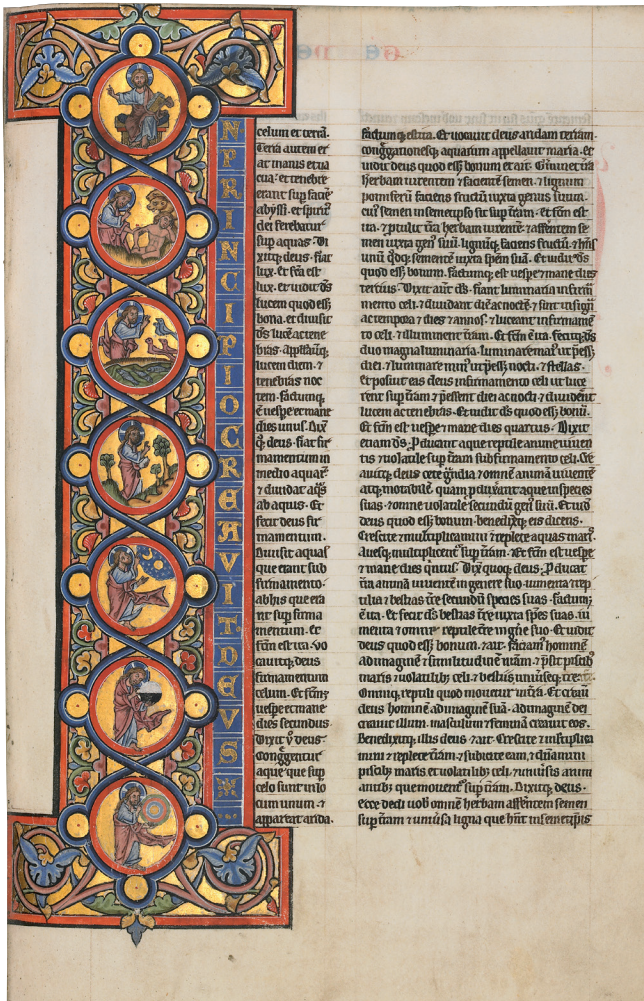 IN PRINCIPIO CREAVIT DEVS
celum et terrā.
Terra autem er
at inanis et ua
cua: et tenebre
erant sup̄ faciē
abyssi. et spirit᷒
dei ferebatur
sup̄ aquas. Di
xitq; deus. fiat
lux. et fc̄a est
lux. et uidit ds̄
lucem quod ess̄
bona. et diuisit
ds̄ lucē a tene
bris. appellauitq;
lucem diem. ⁊
tenebras noc
tem. factumq;
ē uesp̄e et mane
dies unus. Dix̄
q; deus. fiat fir
mamentum in
medio aquarꝝ
⁊ diuidat aq̄s
ab aquis. Et
fecit deus fir
mamentum.
Diuisit aquas
que erant sub
firmamento.
ab his que era
nt sup̄ firma
mentum. et
fc̄m est ita. vo
cauitq; deus
firmamentum
celum. Et fc̄m ē
uesp̄e et mane
dies secundus.
Dixit ů deus.
Congregentur
aque que sub
celo sunt in lo
cum unum. ⁊
appareat arida.
factumq; est ita. Et uocauit deus aridam terram.
congregationesq; aquarum appellauit maria. et
uidit deus quod ess̄ bonum et ait. Germinet t̄ra
herbam uirentem ⁊ facientē semen. ⁊ lignum
pomiferū faciens fructū iuxta genus suum.
cui᷒ semen in semetipso sit sup̄ t̄ram. et fc̄m est
ita. ⁊ p̄tulit t̄ra herbam uirentē. ⁊ afferentem se
men iuxta gen᷒ suū. lignūq; faciens fructū. ⁊ hn̄s
unū q̊dq; sementē iuxta speciem suā. Et uidit ds̄
quod ess̄ bonum. factumq; est uesp̄e ⁊ mane dies
tercius. Dixit aūt ds̄. fiant luminaria in firma
mento celi. ⁊ diuidant diē ac noctē. ⁊ sint in signa
ac tempora ⁊ dies ⁊ annos. ⁊ luceant in firmamē
to celi. ⁊ illuminent t̄ram. Et fc̄m ē ita. fecitq; ds̄
duo magna luminaria. luminare maius ut p̄ess̄
diei. ⁊ luminare min᷒ ut p̄ess̄ nocti. ⁊ stellas.
et posuit eas deus in firmamento celi ut luce
rent sup̄ t̄ram ⁊ p̄essent diei ac nocti. ⁊ diuiderent
lucem ac tenebras. Et uidit ds̄ quod ess̄ bonū.
Et fc̄m est uesp̄e ⁊ mane dies quartus. Dixit
etiam ds̄. p̄ducant aque reptile anime uiuen
tis ⁊ uolatile sup̄ t̄ram sub firmamento celi. Cre
auitq; deus cete grandia ⁊ omnē animā uiuentē
atq; motabilē. quam p̄duxerant aque in species
suas. ⁊ omne uolatile secundū gen᷒ suū. Et uidit
deus quod ess̄ bonum. benedixitq; eis dicens.
Crescite ⁊ multiplicamini ⁊ replete aquas maris.
Auesq; multiplicent᷑ sup̄ t̄ram. Et fc̄m est uesp̄e
⁊ mane dies quintus. Dix̄ quoq; deus. p̄ducat
t̄ra animā uiuentē in genere suo. iumenta ⁊ rep
tilia ⁊ bestias t̄re secundū species suas. factumq;
ē ita. et fecit ds̄ bestias t̄re iuxta species suas. iu
menta ⁊ omne reptile t̄re in gn̄e suo. Et uidit
deus quod ess̄ bonum. ⁊ ait. faciam᷒ hominē
ad imaginē ⁊ similitudinē nr̄am. ⁊ p̄sit piscib᷒
maris ⁊ uolatilib᷒ celi. ⁊ bestiis uniuseq; t̄re.
Omniq; reptili quod mouetur in t̄ra. Et creauit
deus hominē ad imaginē suā. ad imaginē dei
creauit illum. masculum ⁊ feminā creauit eos.
Benedixitq; illis deus ⁊ ait. Crescite ⁊ multiplica
mini ⁊ replete t̄ram. ⁊ subicite eam. ⁊ dn̄amini
piscib᷒ maris et uolatilib᷒ celi. ⁊ uniuersis anim
antib᷒ que mouent᷑ sup̄ t̄ram. Dixitq; deus.
ecce dedi uob̄ omnem herbam afferentem semen
sup̄ t̄ram ⁊ uniu̅sa ligna que hn̄t in semetip̄is